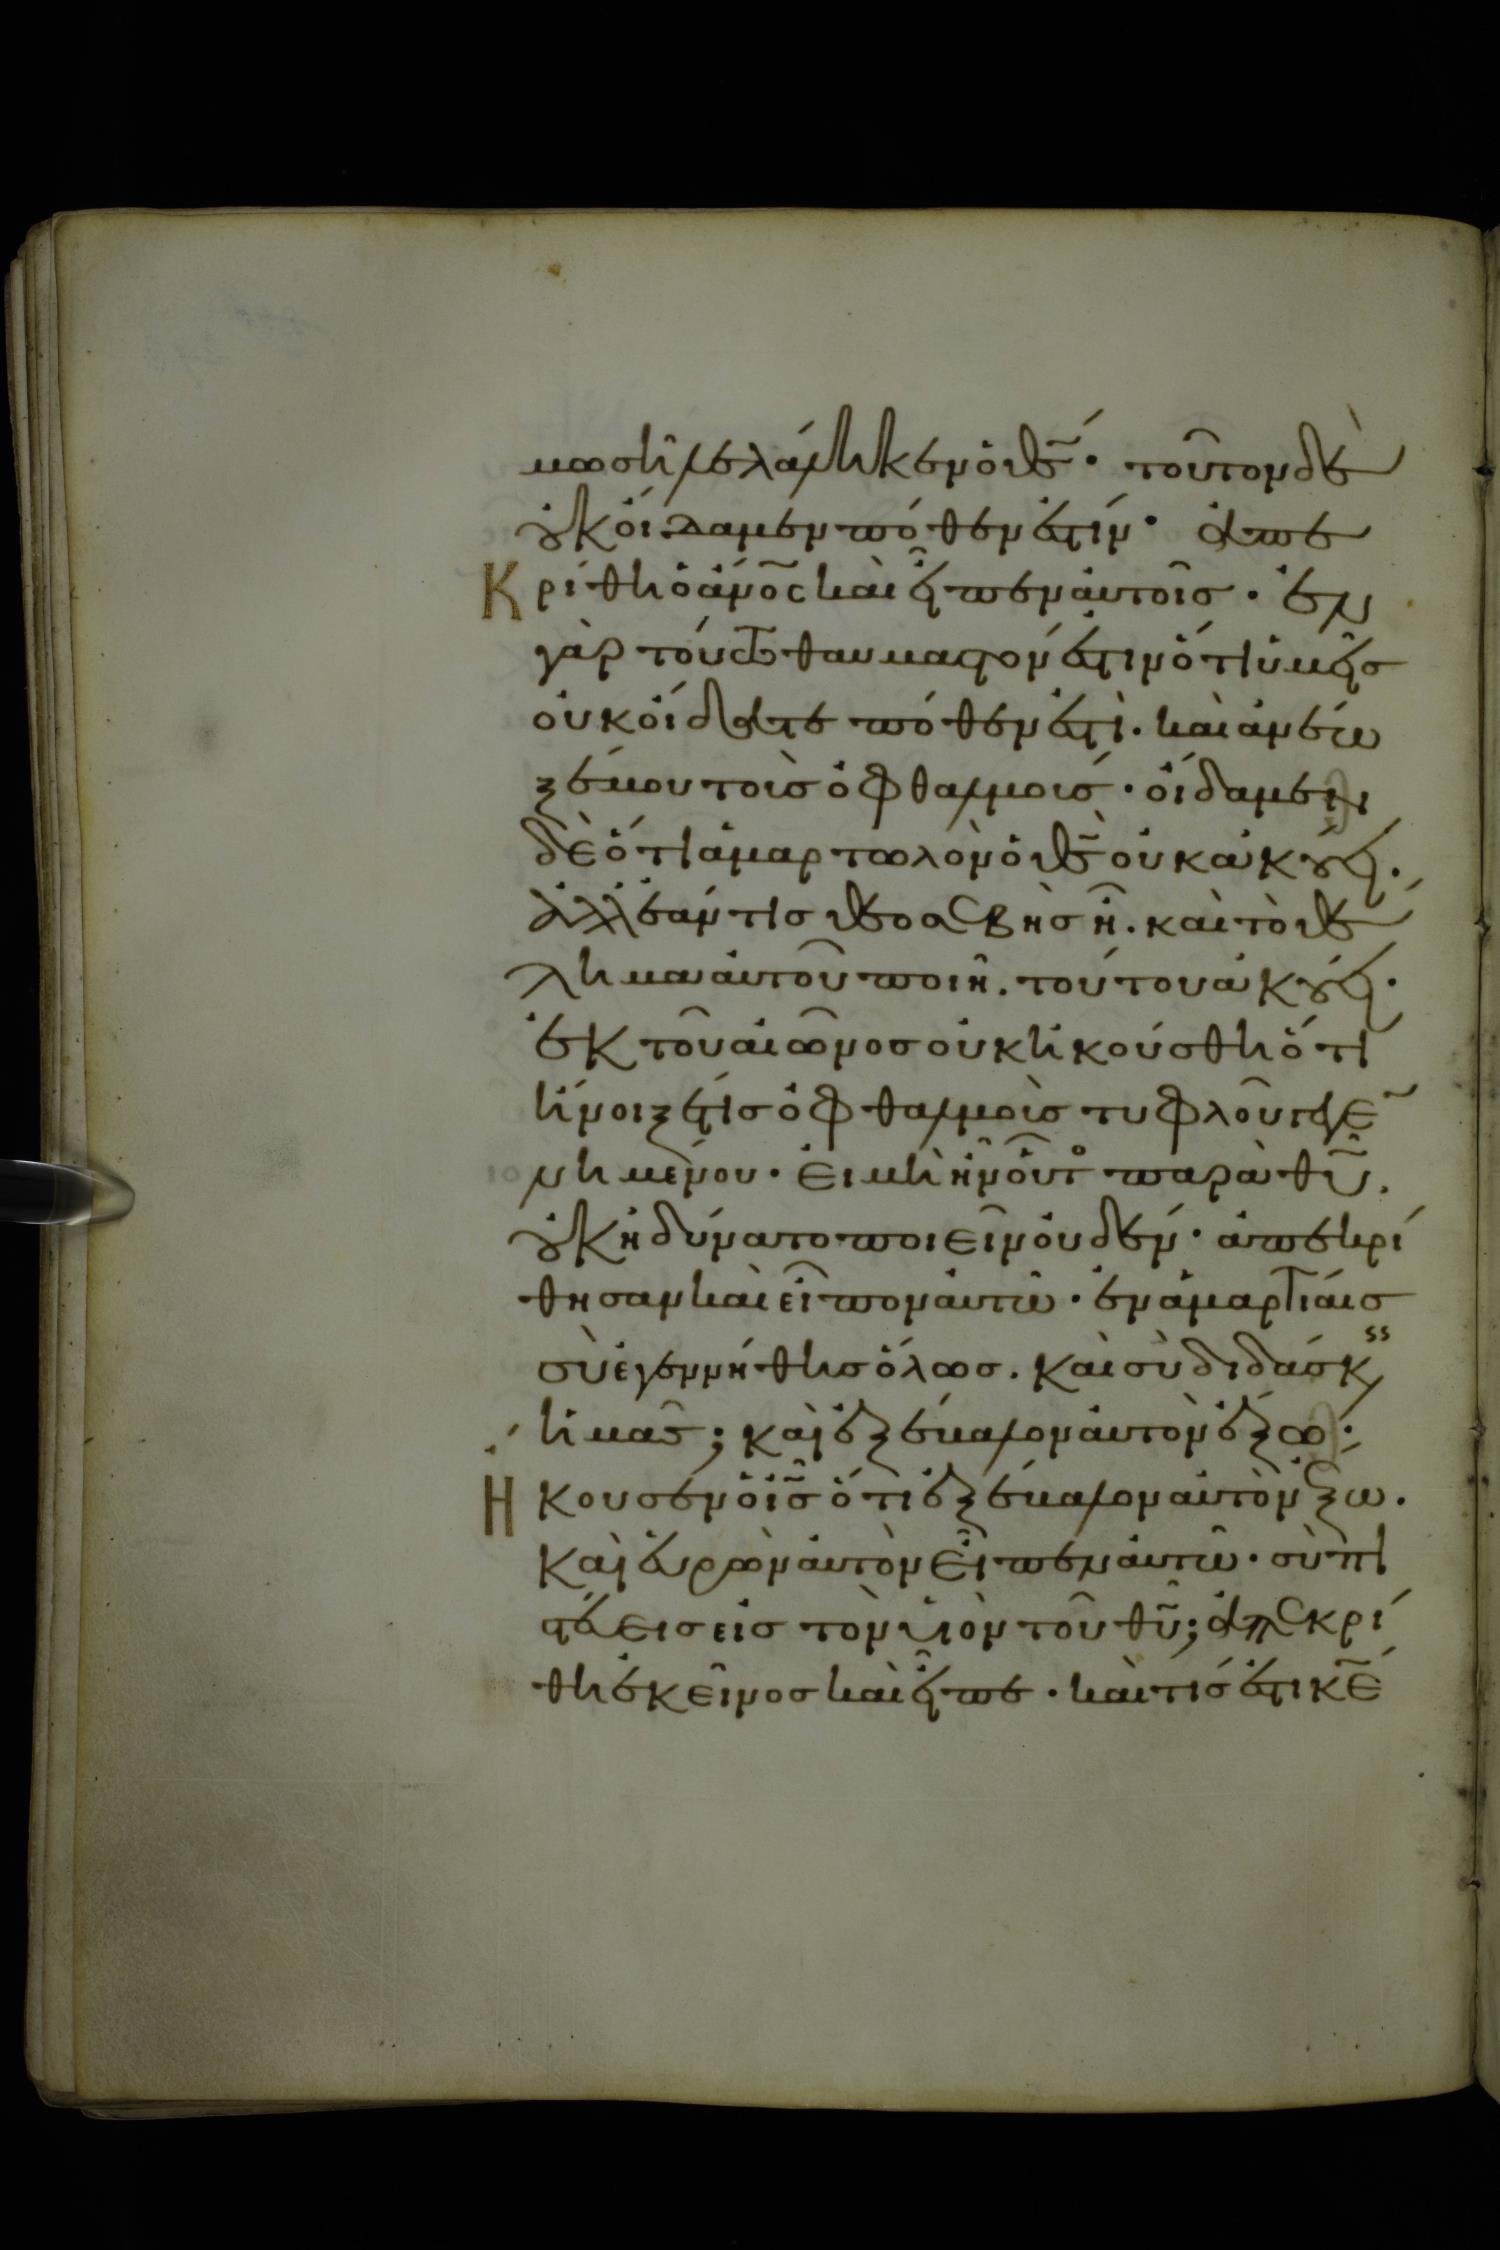 μωσῆ λελάληκεν ὁ θς̄· τοῦτον δὲ
οὐκ οἴδαμεν πόθεν ἐστίν· ἀπε
Κρίθη ὁ ἄνο̄ς καὶ εἶπεν αὐτοῖς· ἐν
γὰρ τούτω θαυμαστόν ἐστιν ὅτι ὑμεῖς
οὐκ οἴδατε πόθεν ἐστὶ. καὶ ἀνέω
ξέ μου τοὺς ὀφθαλμούς· οἴδαμεν
δὲ ὅτι ἁμαρτωλὸν ὁ θς̄ οὐκ ἀκούει.
ἀλλ' ἐάν τις θεοσεβὴς ῆ. καὶ τὸ θέ
λημα αὐτοῦ ποιῆ. τούτου ἀκούει.
ἐκ τοῦ αἰῶνος οὐκ ἠκούσθη ὅτι
ἤνοιξέ τις ὀφθαλμοὺς τυφλοῦ γεγε
νημένου· εἰ μὴ ἦν οὗτος παρὰ θῡ.
οὐκ ἠδύνατο ποιεῖν οὐδέν· ἀπεκρί
θησαν καὶ εἶπον αὐτῶ· ἐν ἁμαρτίαις
σὺ ἐγεννήθης ὅλως. καὶ σὺ διδάσκεις
ἡμᾶς; καὶ ἐξέβαλον αὐτὸν ἔξω·
Ἤκουσεν ὁ ις̄ ὅτι ἐξέβαλον αὐτὸν ἔξω.
καὶ εὑρὼν αὐτὸν εἶπεν αὐτῶ· σὺ πι
στεύεις εἰς τὸν υἱὸν τοῦ θῡ; ἀπεκρί
θη ἐκεῖνος καὶ εἶπε· καὶ τίς ἐστι κε̄